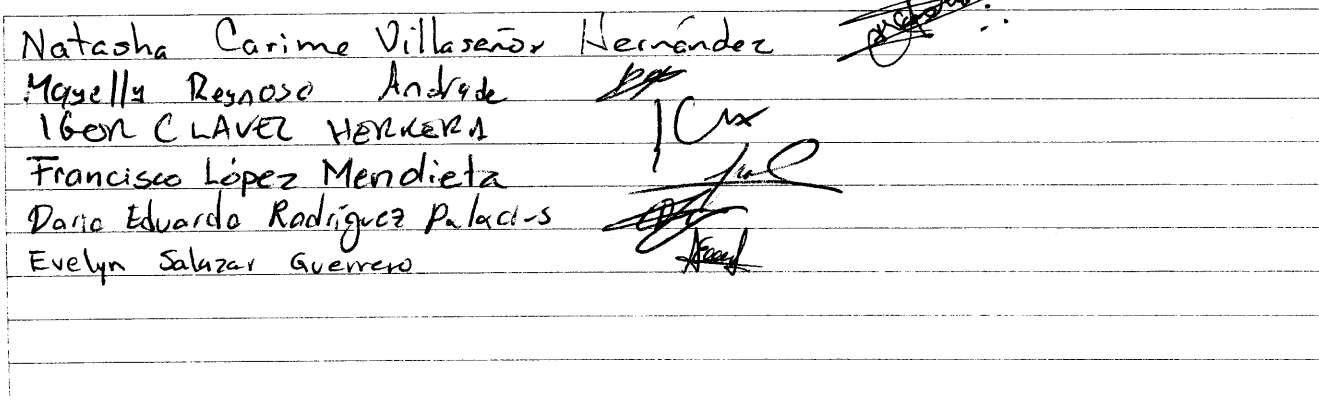 Natasha Carime Villaseñor Hernández
Mayelly Reynoso Andrade
IGOR CLAVEL HERRERA
Francisco López Mendieta
Dario Eduardo Rodríguez Palacios
Evelyn Salazar Guerrero